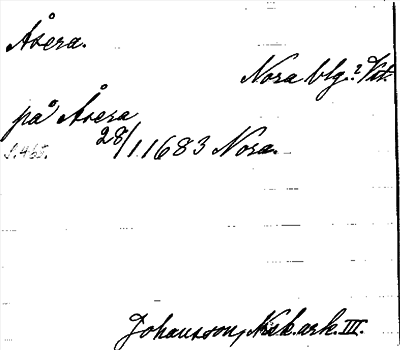 Åsera.
Nora blg.?
på Åsera
28/1 1683 Nora.
s. 465.
Johansson, Nsk. ark. III.